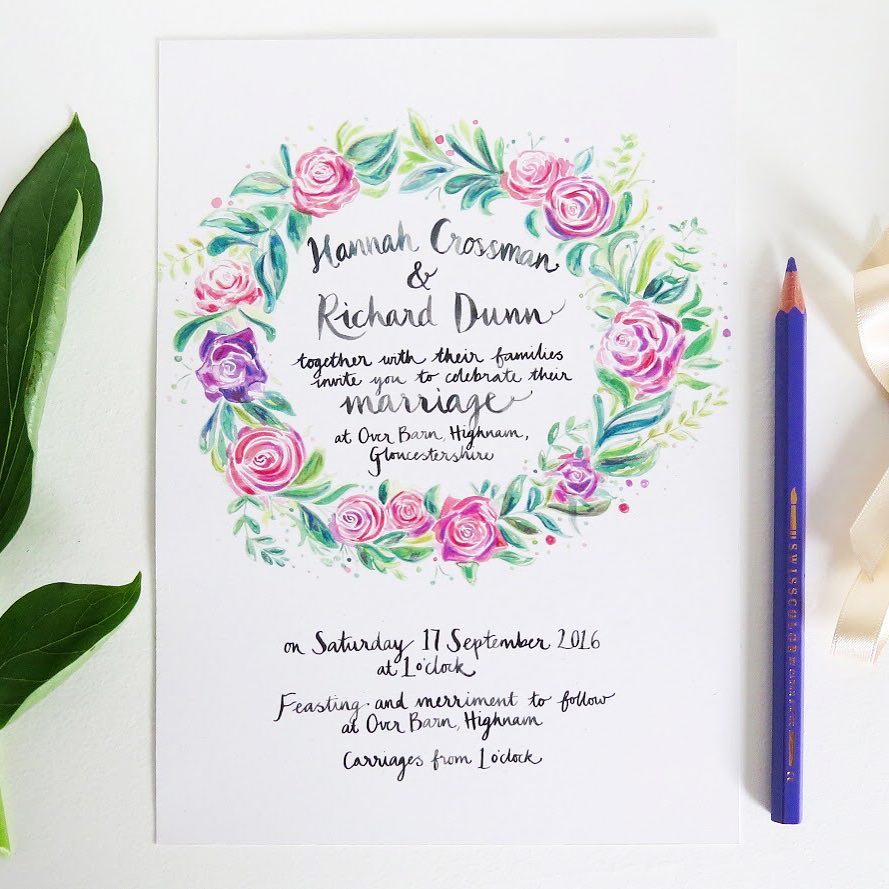 Hannah Crossman
&
Richard Dunn
together with their families
invite you to celebrate their
marriage
at Over Barn, Highnam,
Gloucestershire
on Saturday 17 September 2016
at 1 o'clock
Feasting and merriment to follow
at Over Barn, Highnam
Carriages from 1 o'clock
SWISSCOLOR